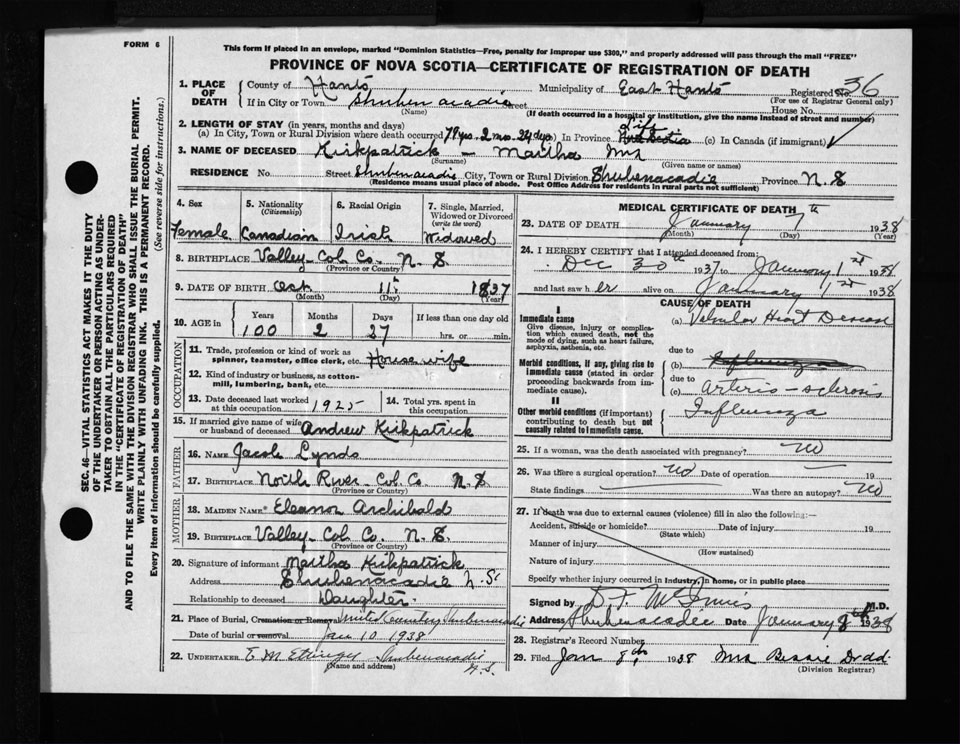 FORM 6
This form if placed in an envelope, marked "Dominion Statistics—Free, penalty for improper use $300," and properly addressed will pass through the mail "FREE"
PROVINCE OF NOVA SCOTIA—CERTIFICATE OF REGISTRATION OF DEATH
SEC. 46—VITAL STATISTICS ACT MAKES IT THE DUTY
OF THE UNDERTAKER OR PERSON ACTING AS UNDER-
TAKER TO OBTAIN ALL THE PARTICULARS REQUIRED
IN THE "CERTIFICATE OF REGISTRATION OF DEATH"
AND TO FILE THE SAME WITH THE DIVISION REGISTRAR WHO SHALL ISSUE THE BURIAL PERMIT.
WRITE PLAINLY WITH UNFADING INK. THIS IS A PERMANENT RECORD.
Every item of information should be carefully supplied. (See reverse side for instructions.)
1. PLACE OF DEATH County of Hants Municipality of East Hants Registered No. 36
(For use of Registrar General only)
If in City or Town Shubenacadie Street House No.
(Name) (If death occurred in a hospital or institution, give the name instead of street and number)
2. LENGTH OF STAY (in years, months and days)
(a) In City, Town or Rural Division where death occurred 79 yrs 2 mos 24 dys (b) In Province life Nova Scotia (c) In Canada (if immigrant)
3. NAME OF DECEASED Kirkpatrick — Martha Mrs
(Surname) (Given name or names)
RESIDENCE No. Street Shubenacadie City, Town or Rural Division Shubenacadie Province N.S
(Residence means usual place of abode. Post Office Address for residents in rural parts not sufficient)
4. Sex Female
5. Nationality (Citizenship) Canadian
6. Racial Origin Irish
7. Single, Married, Widowed or Divorced (write the word) Widowed
8. BIRTHPLACE Valley - Col. Co. N.S.
(Province or Country)
9. DATE OF BIRTH Oct 11 1837
(Month) (Day) (Year)
10. AGE in Years Months Days If less than one day old
100 2 27 hrs. or min.
OCCUPATION
11. Trade, profession or kind of work as spinner, teamster, office clerk, etc. House wife
12. Kind of industry or business, as cotton-mill, lumbering, bank, etc.
13. Date deceased last worked at this occupation 1925
14. Total yrs. spent in this occupation
15. If married give name of wife or husband of deceased Andrew Kirkpatrick
FATHER
16. NAME Jacob Lynds
17. BIRTHPLACE North River - Col. Co N.S.
(Province or Country)
MOTHER
18. MAIDEN NAME Eleanor Archibald
19. BIRTHPLACE Valley - Col. Co. N.S.
(Province or Country)
20. Signature of informant Martha Kirkpatrick
Address Shubenacadie N.S.
Relationship to deceased Daughter
21. Place of Burial, Cremation or Removal Shubenacadie
Date of burial or removal Jan 10 1938
22. UNDERTAKER E M Ettinger Shubenacadie N.S.
(Name and address)
MEDICAL CERTIFICATE OF DEATH
23. DATE OF DEATH January 7th 1938
(Month) (Day) (Year)
24. I HEREBY CERTIFY that I attended deceased from:
Dec 30th 1937 to January 1st 1938
and last saw her alive on January 1st 1938
CAUSE OF DEATH
I
Immediate cause
Give disease, injury or complication which caused death, not the mode of dying, such as heart failure, asphyxia, asthenia, etc.
(a) Valvular Heart Disease
Morbid conditions, if any, giving rise to immediate cause (stated in order proceeding backwards from immediate cause).
due to
(b) Influenza
due to
(c) Arterio - sclerosis
II
Other morbid conditions (if important) contributing to death but not causally related to immediate cause.
Influenza
25. If a woman, was the death associated with pregnancy? no
26. Was there a surgical operation? No Date of operation 19
State findings Was there an autopsy? No
27. If death was due to external causes (violence) fill in also the following:—
Accident, suicide or homicide? Date of injury 19
(State which)
Manner of injury
(How sustained)
Nature of injury
Specify whether injury occurred in industry, in home, or in public place
Signed by D. F. McInnis M.D.
Address Shubenacadie Date January 8th 1938
28. Registrar's Record Number
29. Filed Jan 8th, 1938 Mrs Bessie Dodd
(Division Registrar)